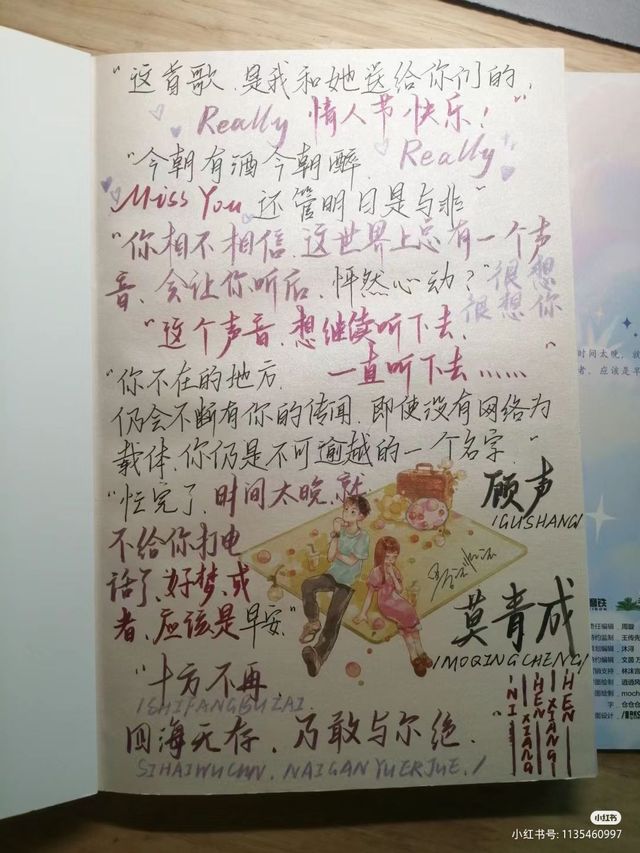 “这首歌,是我和她送给你们的,
Really 情人节快乐！”
“今朝有酒今朝醉, Really
Miss You 还管明日是与非”
“你相不相信,这世界上总有一个声
音、会让你听后、怦然心动？”很想
很想你
“这个声音、想继续听下去,
一直听下去……”
“你不在的地方,
仍会不断有你的传闻,即使没有网络为
载体,你仍是不可逾越的一个名字。”
“忙完了,时间太晚,就
不给你打电
话了、好梦、或
者、应该是早安”
顾声
/GUSHANG/
莫青成
/MOQINGCHENG/
“十方不再,
/SHIFANGBUZAI,
四海无存，乃敢与尔绝.
SIHAIWUCUN, NAIGANYUERJUE,/
HEN
XIANG
HEN
XIANG
NI
时间太晚，就
者，应该是早
小红书
小红书号: 1135460997